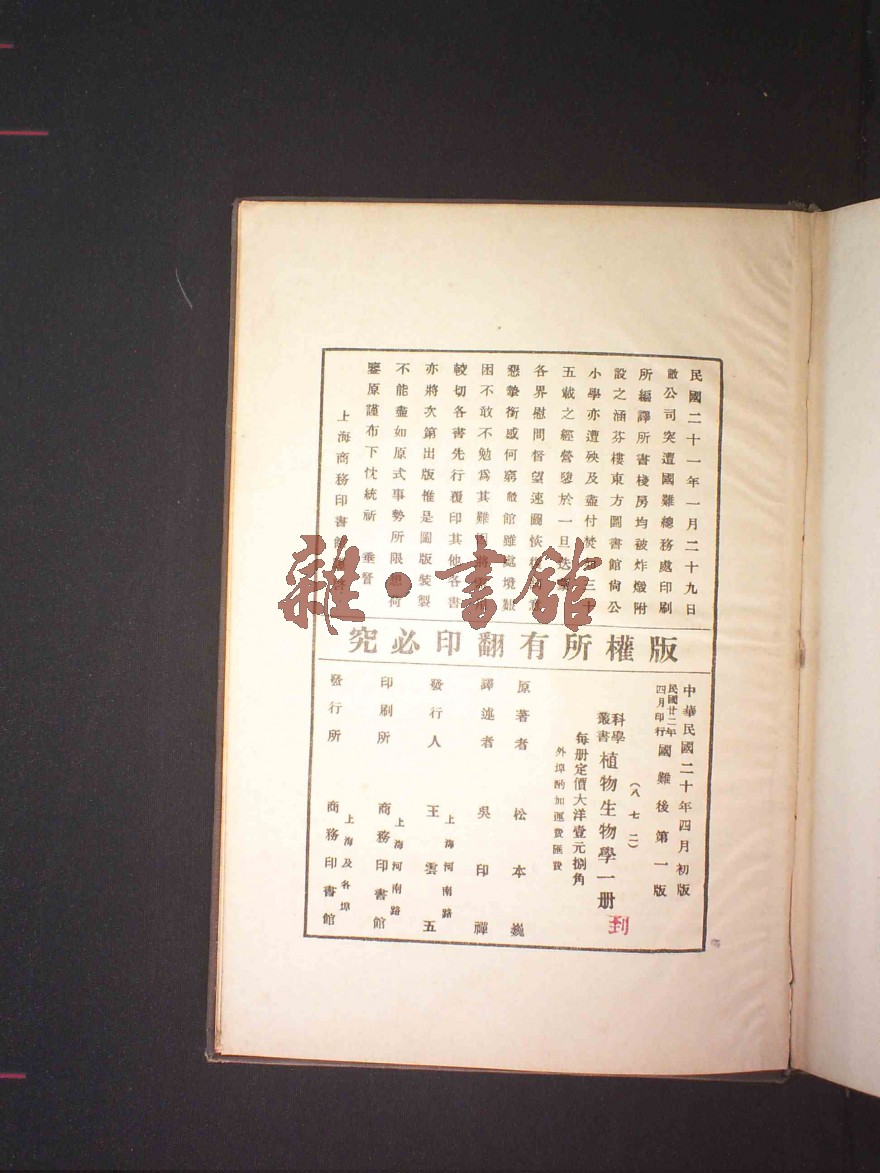 民國二十一年一月二十九日
敝公司突遭國難總務處印刷
所編譯所書棧房均被炸燬附
設之涵芬樓東方圖書館尚公
小學亦遭殃及盡付焚如三十
五載之經營隳於一旦迭蒙
各界慰問督望速圖恢復詞意
懇摯銜感何窮敝館雖處境艱
困不敢不勉爲其難因將需用
較切各書先行覆印其他各書
亦將次第出版惟是圖版裝製
不能盡如原式事勢所限想荷
鑒原謹布下忱統祈 垂詧
上海商務印書館謹啓
版權所有翻印必究
中華民國二十年四月初版
民國廿二年四月印行國難後第一版
(八七二)
科學叢書植物生物學一册
到
每册定價大洋壹元捌角
外埠酌加運費匯費
原著者 松本巍
譯述者 吳印禪
發行人 王雲五
上海河南路
印刷所 商務印書館
上海河南路
發行所 商務印書館
上海及各埠
雜·書館